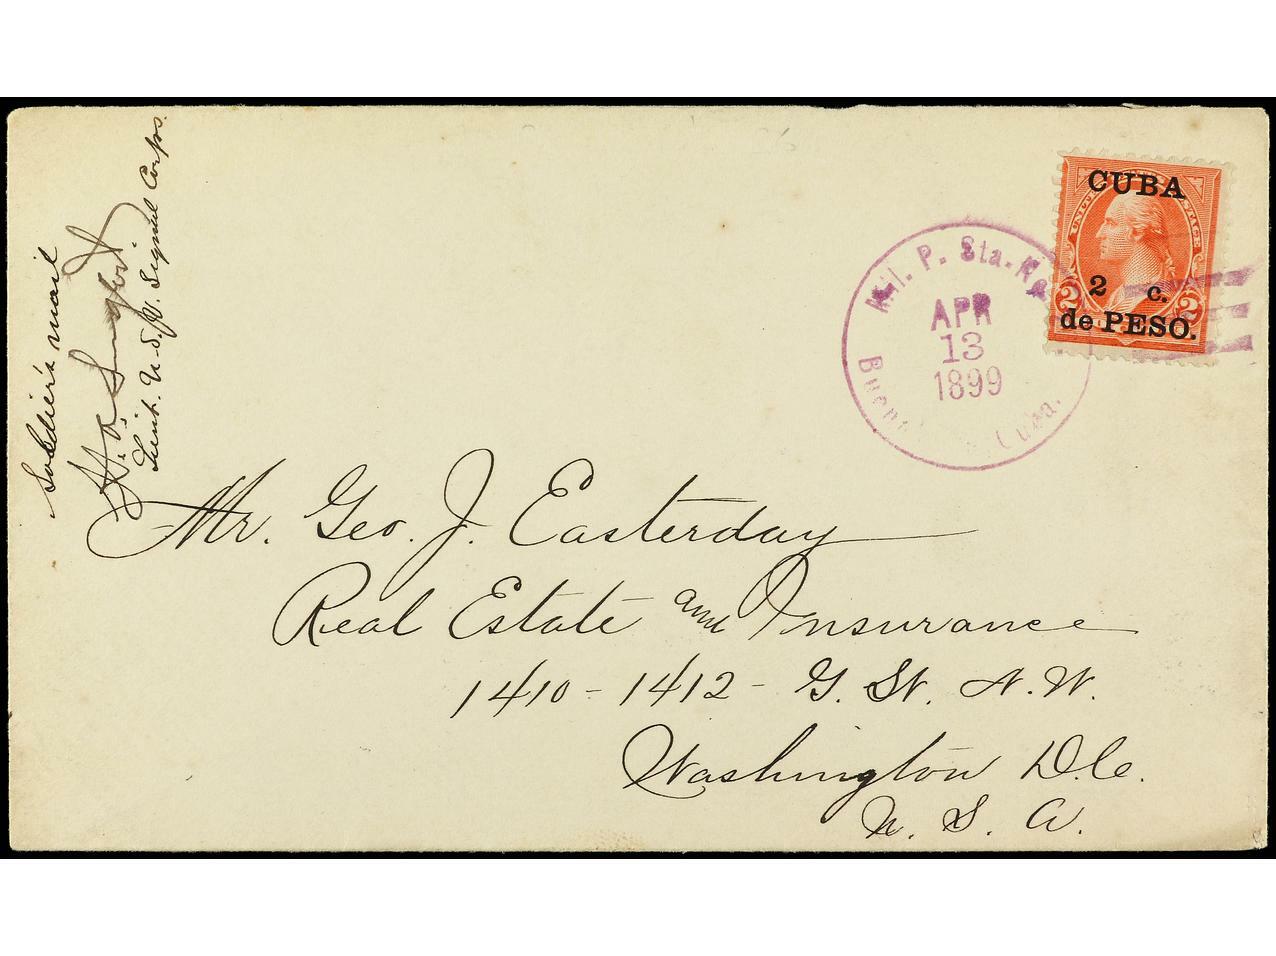 Soldier's mail
Lieut. U.S.V. Signal Corps.
CUBA
UNITED STATES POSTAGE
2 c.
2 2
de PESO.
Mil. P. Sta. No.
APR
13
1899
Cuba.
Mr. Geo. J. Easterday
Real Estate and Insurance
1410-1412- G. St. N.W.
Washington D.C.
U. S. A.